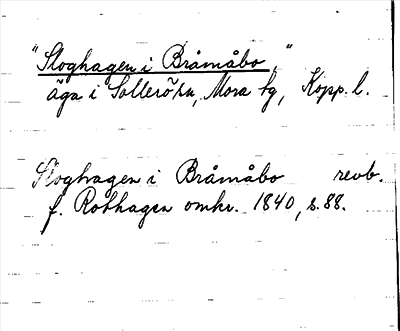 "Sloghagen i Bråmåbo,"
äga i Sollerö sn, Mora tg, Kopp. l.
Sloghagen i Bråmåbo revb.
f. Rothagen omkr. 1840, s. 88.